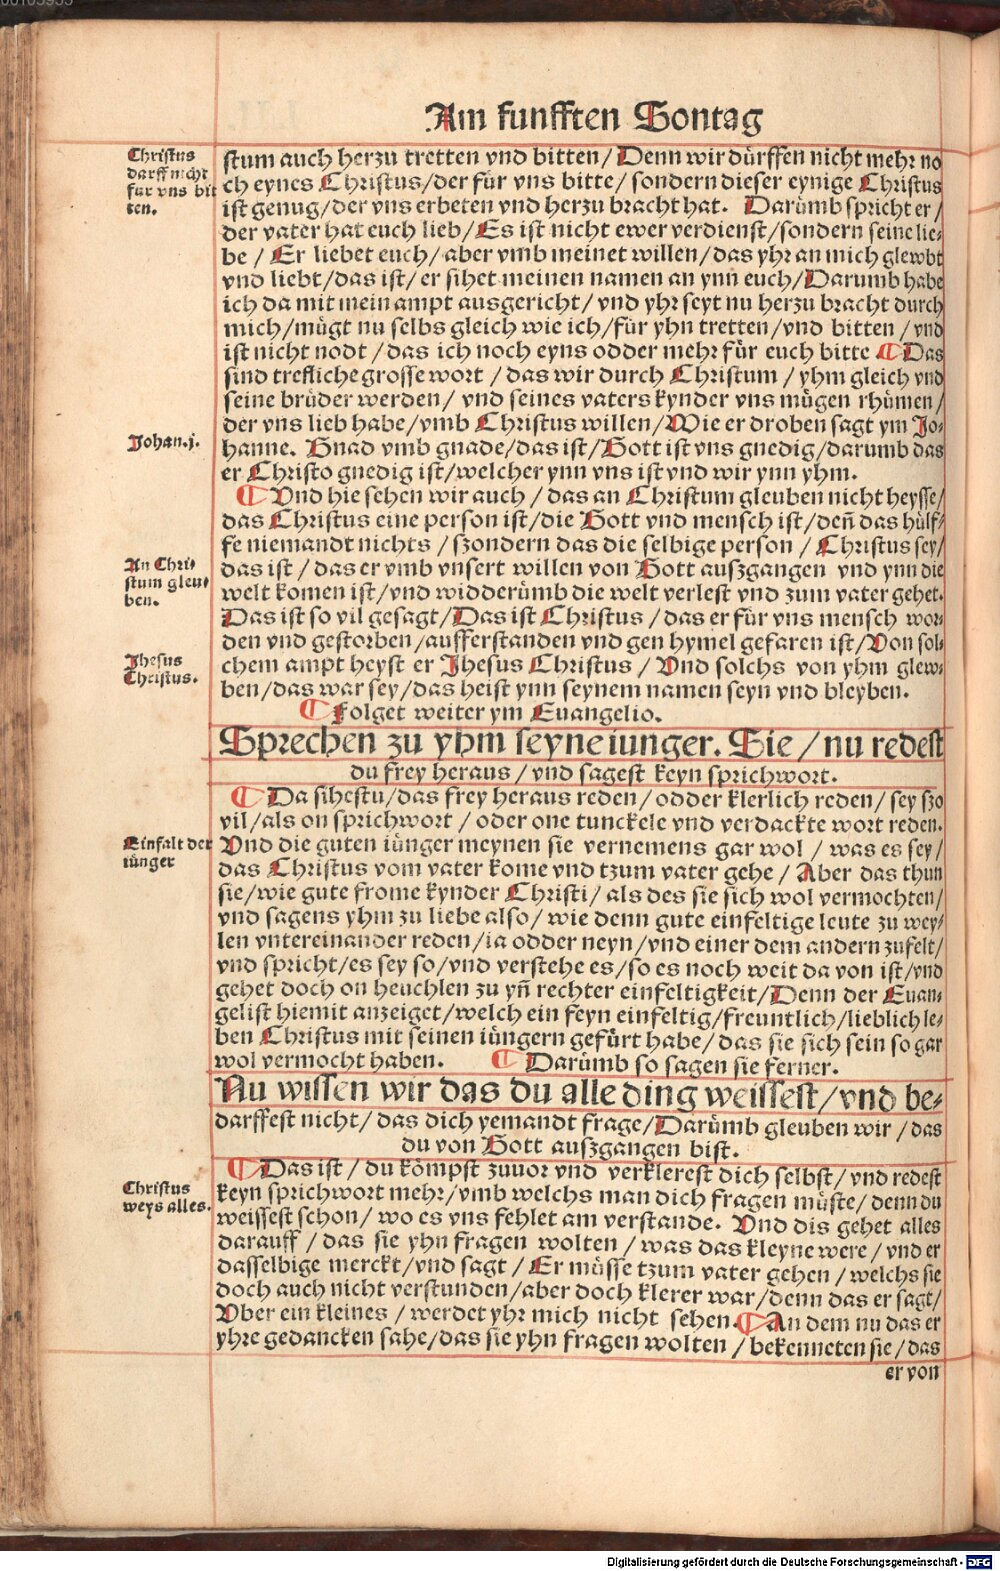 Am funfften Sontag
Christus
darff nicht
fur vns bit
ten.
stum auch herzu tretten vnd bitten/ Denn wir dürffen nicht mehr no
ch eynes Christus/der für vns bitte/ sondern dieser eynige Christus
ist genug/der vns erbeten vnd herzu bracht hat. Darümb spricht er/
der vater hat euch lieb/ Es ist nicht ewer verdienst/sondern seine lie⸗
be / Er liebet euch/ aber vmb meinet willen/ das yhr an mich glewbt
vnd liebt/das ist/ er sihet meinen namen an ynn euch/ Darumb habe
ich da mit mein ampt ausgericht/ vnd yhr seyt nu herzu bracht durch
mich/mügt nu selbs gleich wie ich/für yhn tretten/vnd bitten / vnd
ist nicht nodt /das ich noch eyns odder mehr für euch bitte ¶ Das
sind trefliche grosse wort / das wir durch Christum / yhm gleich vnd
seine brüder werden/ vnd seines vaters kynder vns mügen rhümen/
der vns lieb habe/vmb Christus willen/ Wie er droben sagt ym Jo⸗
Johan.j.
hanne. Gnad vmb gnade/das ist/ Gott ist vns gnedig/darumb das
er Christo gnedig ist/welcher ynn vns ist vnd wir ynn yhm.
¶ Vnd hie sehen wir auch / das an Christum gleuben nicht heysse/
das Christus eine person ist/die Gott vnd mensch ist/deñ das hülf⸗
fe niemandt nichts / szondern das die selbige person / Christus sey/
An Chri⸗
stum gleu⸗
ben.
das ist / das er vmb vnsert willen von Gott auszgangen vnd ynn die
welt komen ist/vnd widderümb die welt verlest vnd zum vater gehet.
Das ist so vil gesagt/Das ist Christus / das er für vns mensch wor⸗
den vnd gestorben/aufferstanden vnd gen hymel gefaren ist/Von sol⸗
Jhesus
Christus.
chem ampt heyst er Jhesus Christus / Vnd solchs von yhm glew⸗
ben/das war sey/das heist ynn seynem namen seyn vnd bleyben.
¶ Folget weiter ym Euangelio.
Sprechen zu yhm seyne iunger. Sie / nu redest
du frey heraus / vnd sagest keyn sprichwort.
¶ Da sihestu/das frey heraus reden/ odder klerlich reden/ sey szo
vil/als on sprichwort / oder one tunckele vnd verdackte wort reden.
Einfalt der
iünger
Vnd die guten iünger meynen sie vernemens gar wol / was es sey/
das Christus vom vater kome vnd tzum vater gehe/ Aber das thun
sie/wie gute frome kynder Christi/ als des sie sich wol vermochten/
vnd sagens yhm zu liebe also/ wie denn gute einfeltige leute zu wey⸗
len vntereinander reden/ia odder neyn/vnd einer dem andern zufelt/
vnd spricht/es sey so/vnd verstehe es/so es noch weit da von ist/vnd
gehet doch on heuchlen zu yñ rechter einfeltigkeit/Denn der Euan⸗
gelist hiemit anzeiget/welch ein feyn einfeltig/freuntlich/lieblich le⸗
ben Christus mit seinen iüngern gefürt habe/das sie sich sein so gar
wol vermocht haben. ¶ Darümb so sagen sie ferner.
Nu wissen wir das du alle ding weissest/vnd be⸗
darffest nicht/ das dich yemandt frage/Darümb gleuben wir /das
du von Gott auszgangen bist.
¶ Das ist / du kömpst zuuor vnd verklerest dich selbst/vnd redest
Christus
weys alles.
keyn sprichwort mehr/vmb welchs man dich fragen müste/denn du
weissest schon/ wo es vns fehlet am verstande. Vnd dis gehet alles
darauff / das sie yhn fragen wolten / was das kleyne were / vnd er
dasselbige merckt/vnd sagt / Er müsse tzum vater gehen / welchs sie
doch auch nicht verstunden/aber doch klerer war/denn das er sagt/
Vber ein kleines / werdet yhr mich nicht sehen. ¶ An dem nu das er
yhre gedancken sahe/das sie yhn fragen wolten / bekenneten sie/ das
er von
Digitalisierung gefördert durch die Deutsche Forschungsgemeinschaft - DFG